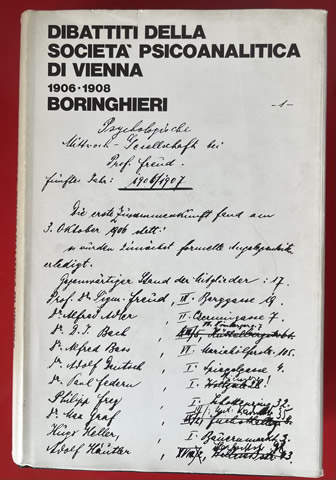 DIBATTITI DELLA
SOCIETA' PSICOANALITICA
DI VIENNA
1906-1908
BORINGHIERI
-1-
Psychologische
Mittwoch-Gesellschaft bei
Prof. Freud.
fünftes Jahr: 1906/1907
Die erste Zusammenkunft fand am
3. Oktober 1906 statt:
es wurden zunächst formelle Angelegenheiten
erledigt.
Gegenwärtiger Stand der Mitglieder: 17.
Prof. Dr. Sigm. Freud, IX. Berggasse 19.
Dr. Alfred Adler, II. Czerningasse 7.
Dr. D. J. Bach,
Dr. Alfred Bass, VI. Mariahilferstr. 105.
Dr. Adolf Deutsch, I. Spiegelgasse 4.
Dr. Paul Federn, I.
Philipp Frey, I. Schottenring 32
Dr. Max Graf,
Hugo Heller, I. Bauernmarkt 3.
Adolf Häutler,